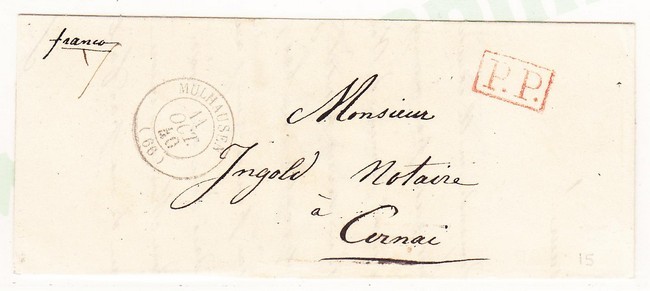 franco
P.P.
MULHAUSEN
11
OCT.
40
(66)
Monsieur
Ingold Notaire
à
Cernai
15